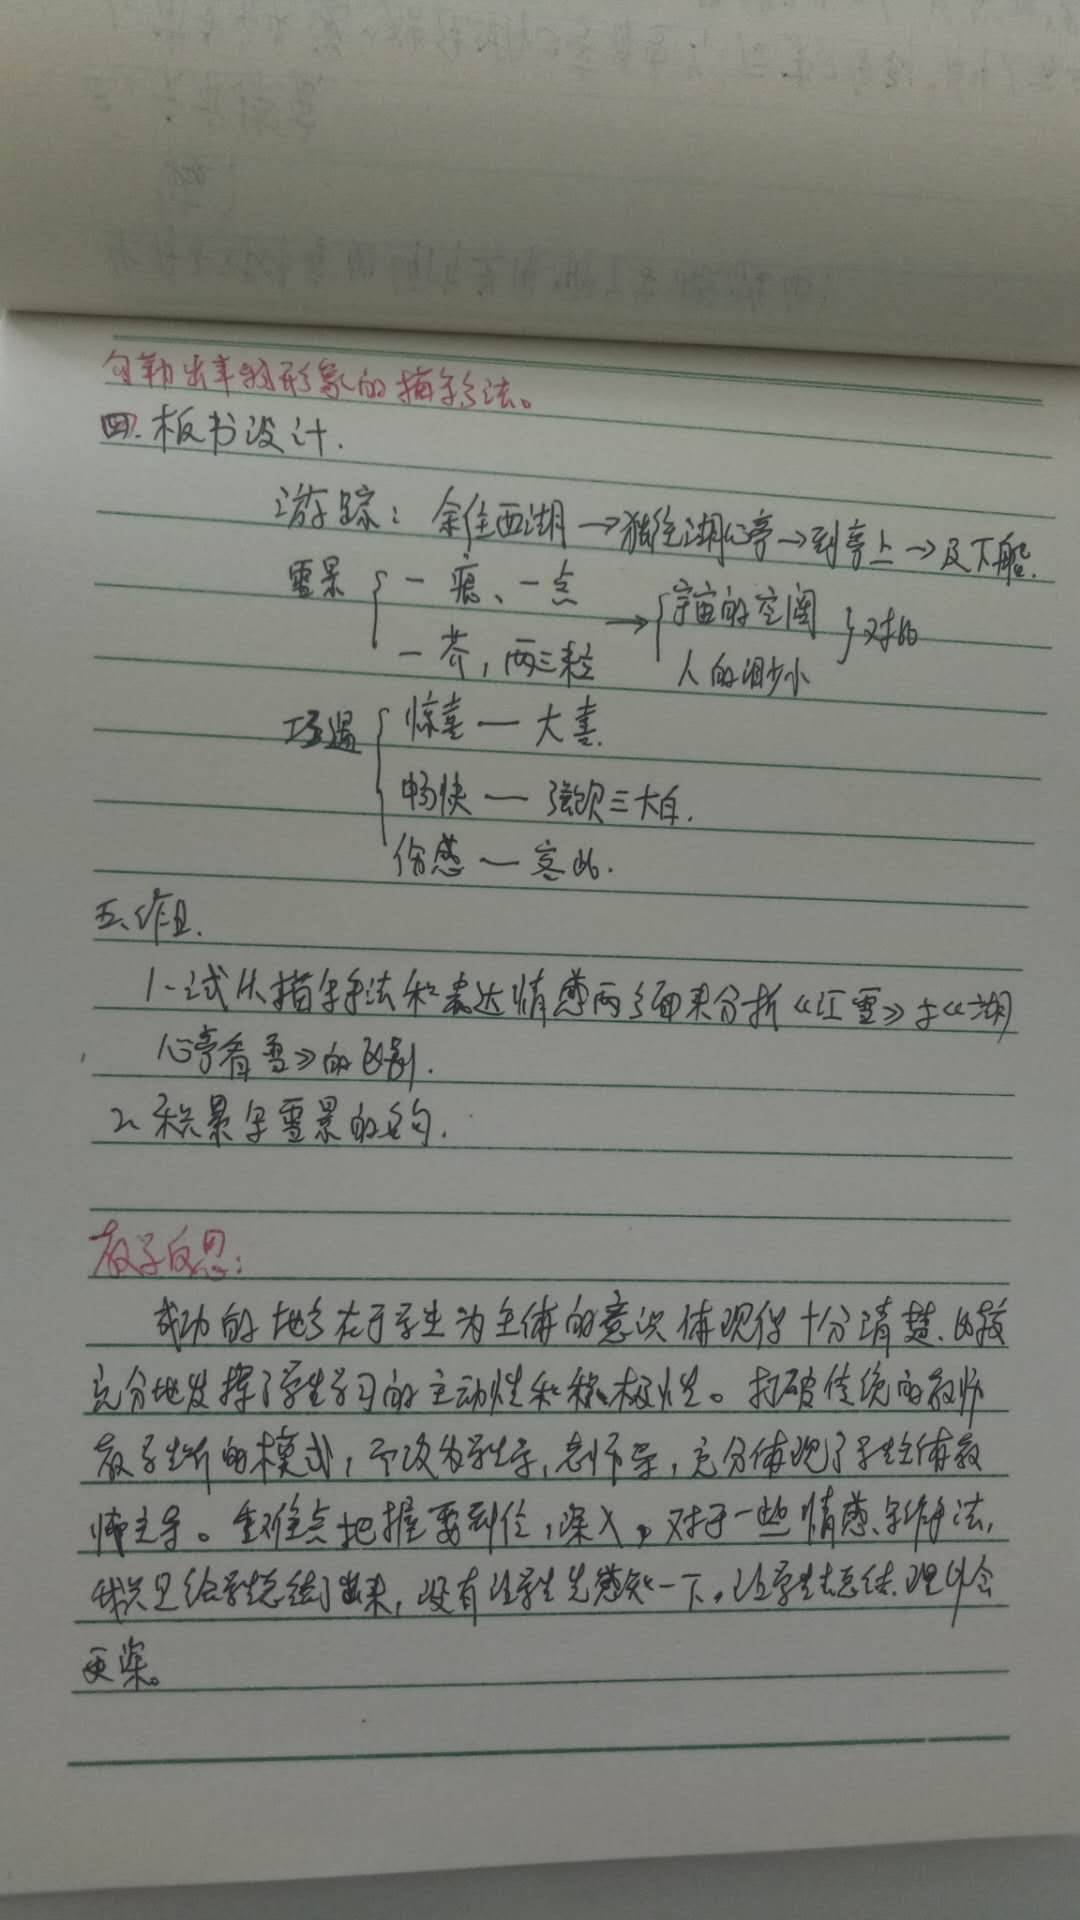 勾勒出事物形象的描写方法。
四.板书设计.
游踪：余住西湖→独往湖心亭→到亭上→及下船.
雪景{一痕、一点
一芥,两三粒→{宇宙的空阔
人的渺小}对比
巧遇{惊喜—大喜.
畅快—强饮三大白.
伤感—客此.
五、作业.
1.试从描写手法和表达情感两方面来分析《江雪》与《湖
心亭看雪》的区别.
2.积累写雪景的名句.
教学反思：
成功的地方在于学生为主体的意识体现得十分清楚.比较
充分地发挥了学生学习的主动性和积极性。打破传统的教师
教学生听的模式,而改为学生学,老师导,充分体现了学生主体教
师主导。重难点把握要到位,深入。对于一些情感、写作手法,
我只是给学生总结了出来,没有让学生先感知一下。让学生去总结.理解会
更深。